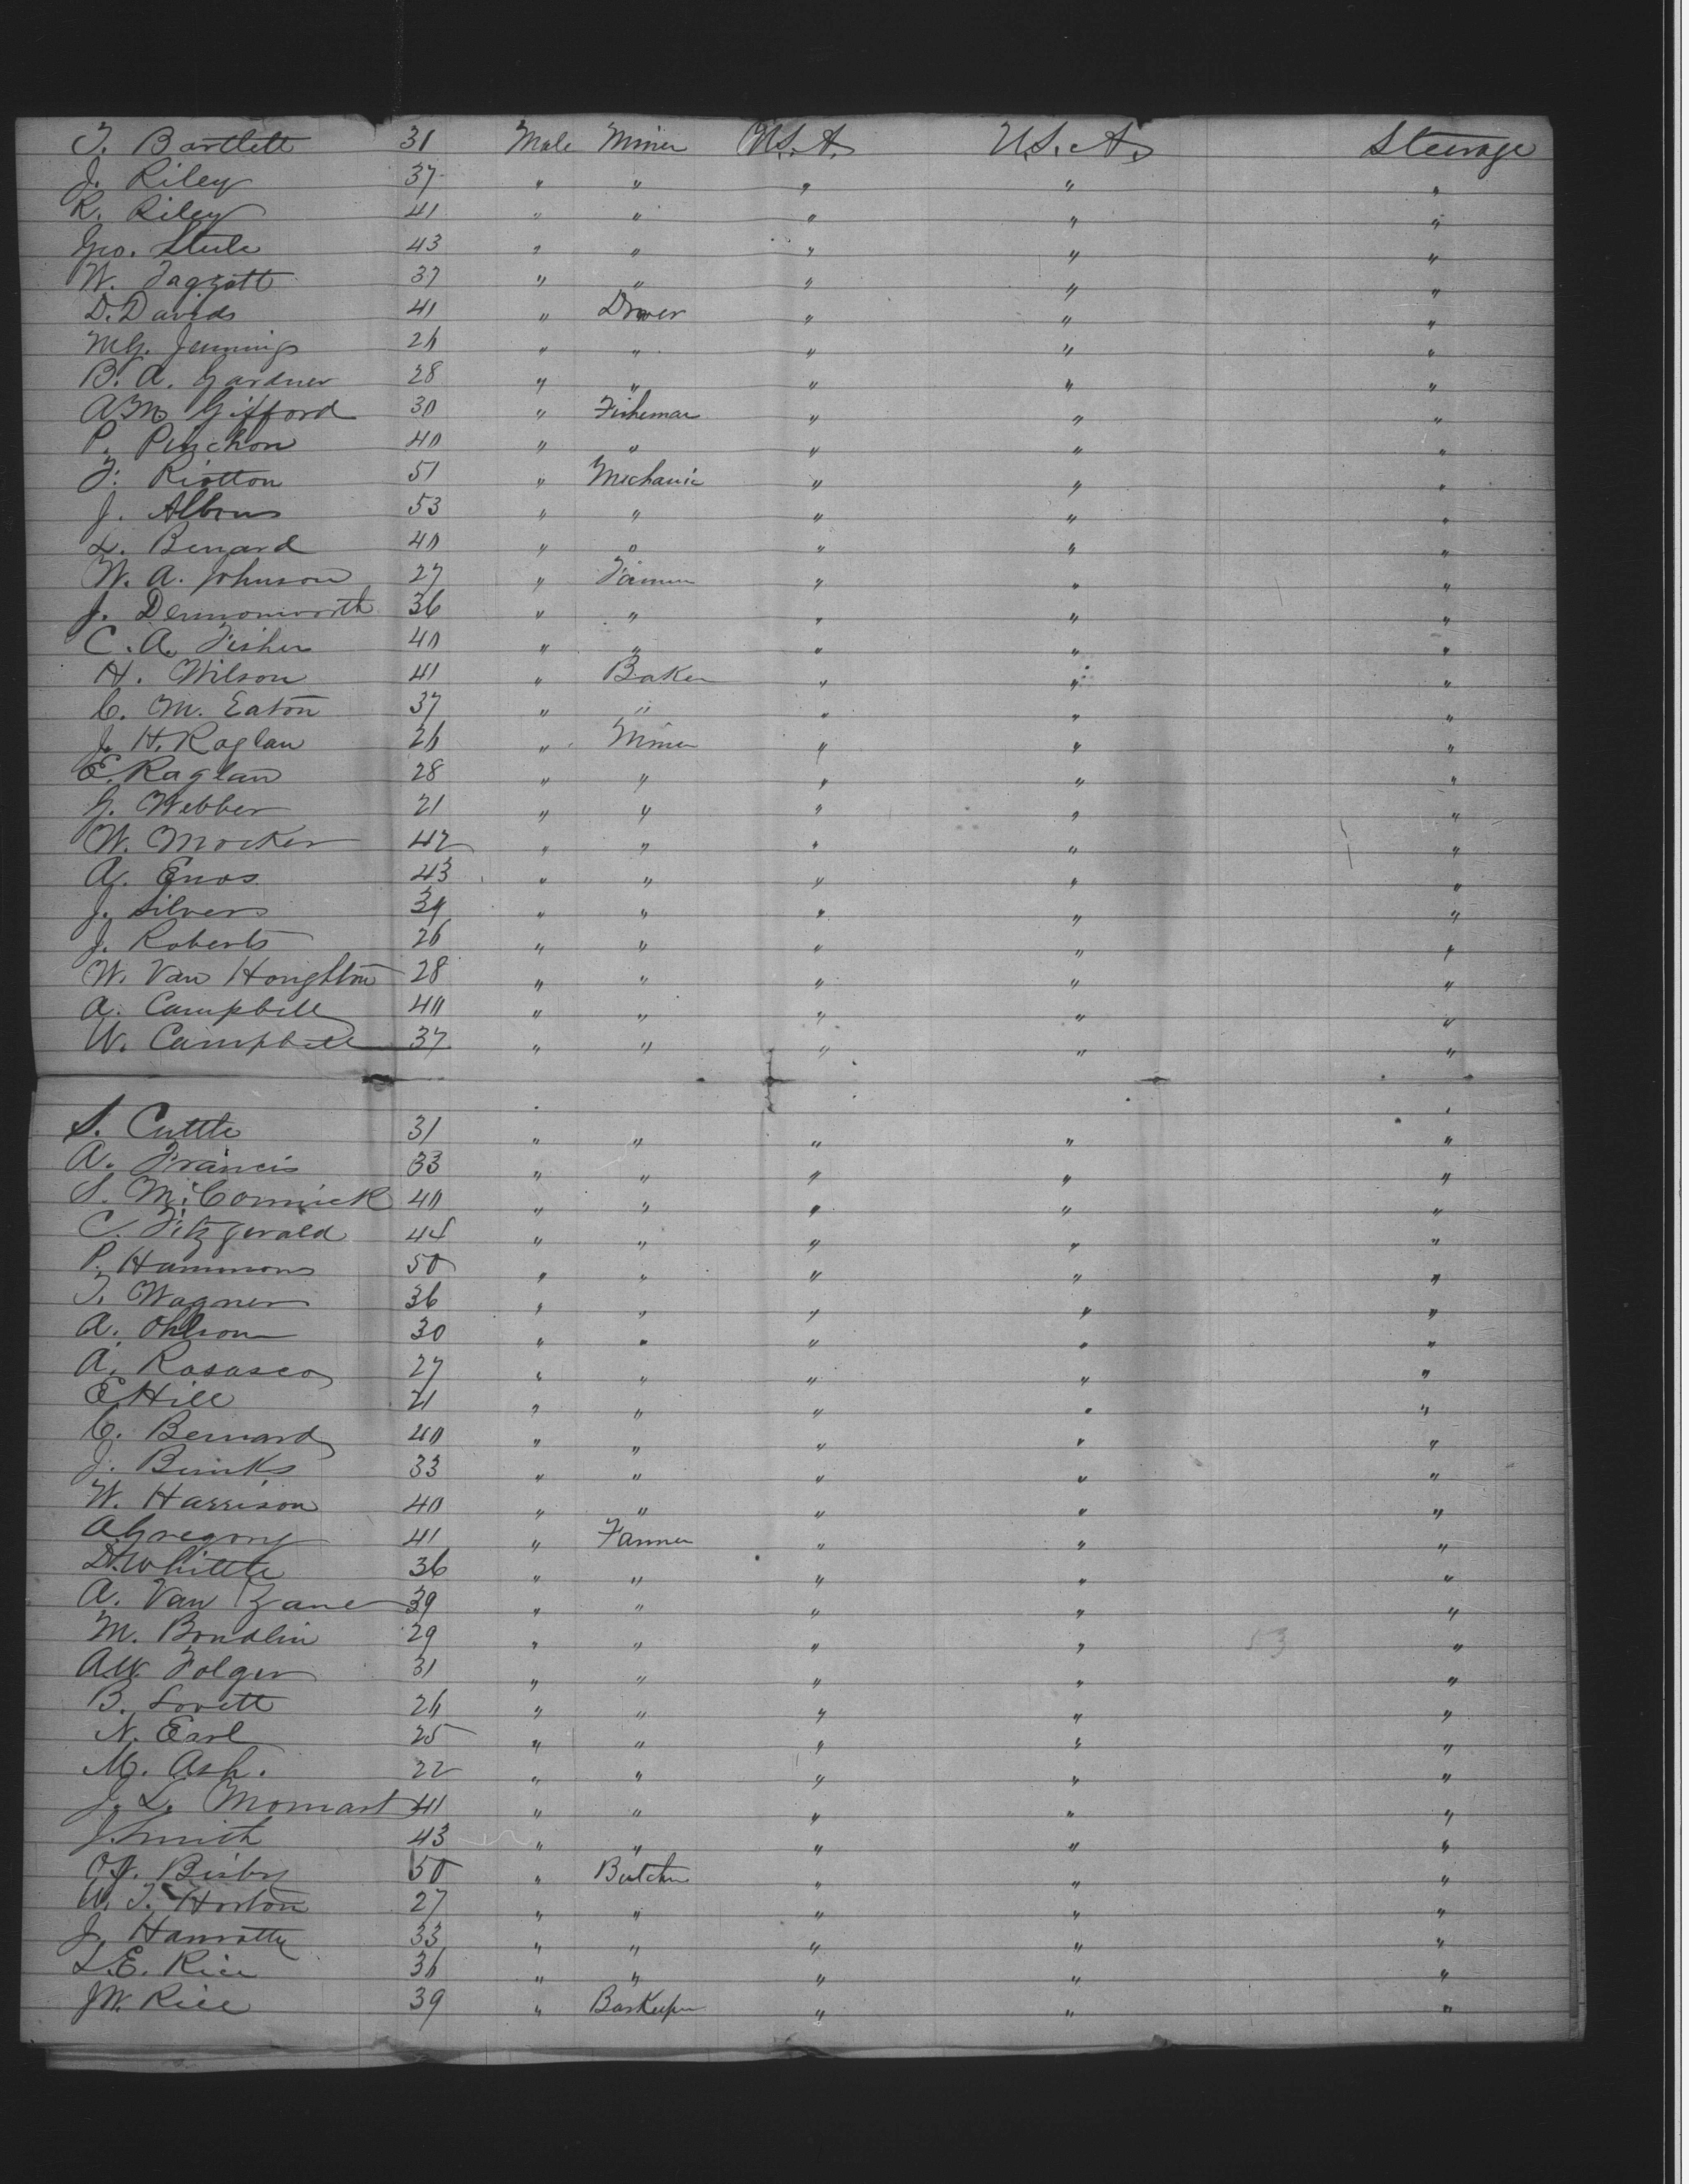 T. Bartlett 31 Male Miner U.S.A. U.S.A. Steerage
J. Riley 37 " " " " "
R. Riley 41 " " " " "
Geo. Steele 43 " " " " "
W. Taggott 37 " " " " "
D. Davids 41 " Drover " " "
Jennings 26 " " " " "
B. A. Gardner 28 " " " " "
A.M. Gifford 30 " Fisheman " " "
P. Pinchon 40 " " " " "
F. Riotton 51 " Mechanic " " "
J. Albrus 53 " " " " "
L. Benard 40 " " " " "
W. A. Johnson 27 " Farmer " " "
J. Dermonworth 36 " " " " "
C. A. Fisher 40 " " " " "
H. Wilson 41 " Baker " " "
C. M. Eaton 37 " " " " "
J. H. Raglan 26 " Miner " " "
E. Raglan 28 " " " " "
G. Webber 21 " " " " "
W. Mocker 42 " " " " "
A. Enos 43 " " " " "
J. Silvers 39 " " " " "
J. Roberts 26 " " " " "
W. Van Houghton 28 " " " " "
A. Campbell 40 " " " " "
W. Campbell 37 " " " " "
S. Cuttle 31 " " " " "
A. Francis 33 " " " " "
S. McCormick 40 " " " " "
C. Fitzgerald 44 " " " " "
P. Hammons 50 " " " " "
T. Wagner 36 " " " " "
A. Ohlson 30 " " " " "
A. Rosasco 27 " " " " "
E Hill 21 " " " " "
C. Bernard 40 " " " " "
J. Binks 33 " " " " "
W. Harrison 40 " " " " "
A Gregory 41 " Farmer " " "
D. Whittle 36 " " " " "
A. Van Zane 39 " " " " "
M. Boudlin 29 " " " " "
A.W. Folger 31 " " " " "
B. Lovett 26 " " " " "
N. Earl 25 " " " " "
M. Ash. 22 " " " " "
J. L. Momart 41 " " " " "
J. Smith 43 " " " " "
O.J. Bixby 50 " Butcher " " "
W. T. Horton 27 " " " " "
J. Hanratty 33 " " " " "
L.E. Rice 36 " " " " "
J.W. Rice 39 " Barkeeper " " "